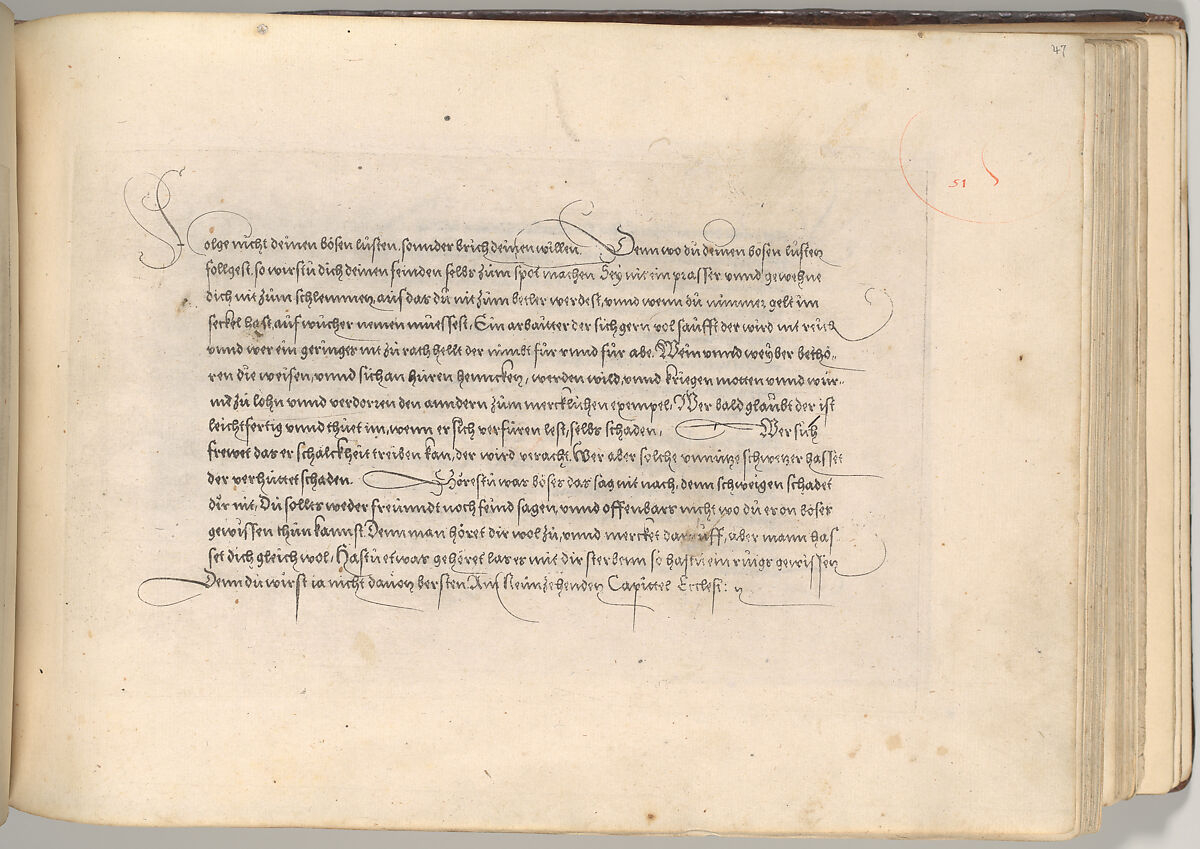 47
51
Folge nicht deinen bösen lüsten, sonnder brich deinen willen. Denn wo dü deinen bosen lüsten
follgest, so wirstü dich deinen feinden selbs züm spot machen Sey nit ein prasser unnd gewehne
dich nit züm schlemmen, auf das dü nit züm betler werdest, unnd wenn dü nimmer gelt im
seckel hast, aüf wücher nemen müessest, Ein arbaütter der sich gern vol saüfft der wird nit reich
unnd wer ein geringes nit zü rath hellt der nimbt für unnd für abe. Wein unnd weyber bethö-
ren die weisen, unnd sich an hüren henncken, werden wild, unnd kriegen motten unnd wür-
me zü lohn unnd verdorren den anndern züm mercklichen exempel, Wer bald glaübt der ist
leichtfertig unnd thüet im, wenn er sich verfüren lest, selbs schaden, Wer sich
frewet das er schalckheit treiben kan, der wird veracht. Wer aber solche unnütze schwetzer hasset
der verhüttet schaden. Hörestü was böses das sag nit nach, denn schweigen schadet
dir nit, Dü sollts weder freünndt noch feind sagen, unnd offenbars nicht wo dü es on böses
gewissen thün kannst. Denn man höret dir wol zü, unnd mercket daraüff, aber mann has
set dich gleich wol, Hastü etwas gehöret las es mit dir sterbenn so hastü ein rüigs gewissen
Denn dü wirst ia nicht davon bersten. Am Neünzehenden Capittel Ecclesi: